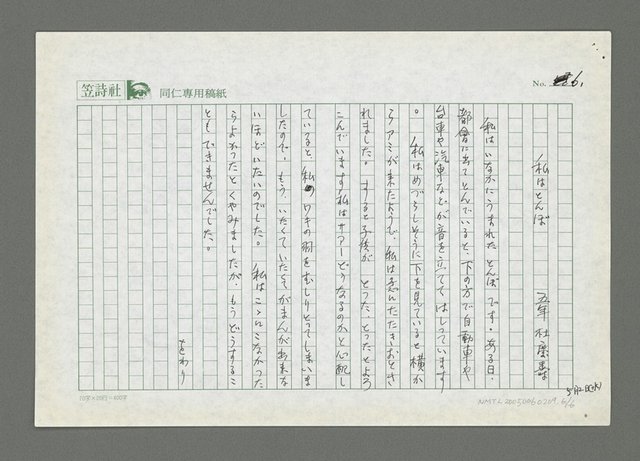 笠詩社
同仁専用稿紙
No. 6.
私はとんぼ
五年 杜
私はいなかにうまれたとんぼです。ある日、
都會に出てとんでいると、下の方で自動車や
台車や汽車などが音を立ててはしっています
。私はめづらしそうに下を見ていると横か
らアミが来たようで、私は急にたたきおとさ
れました。すると子供が とった とったとよろ
こんでいます私はサアーどうなるのかと心配し
ていると、私のワキの羽をむしりとってしまいま
したので、もう、いたくていたくてがまんが出来な
いほどいたいのでした。 私はこゝにこなかった
らよかったとくやみましたが、もうどうするこ
ともできませんでした。
をわり
5月12日(火)
10字×20行=400字
NMTL20050060209 6/6